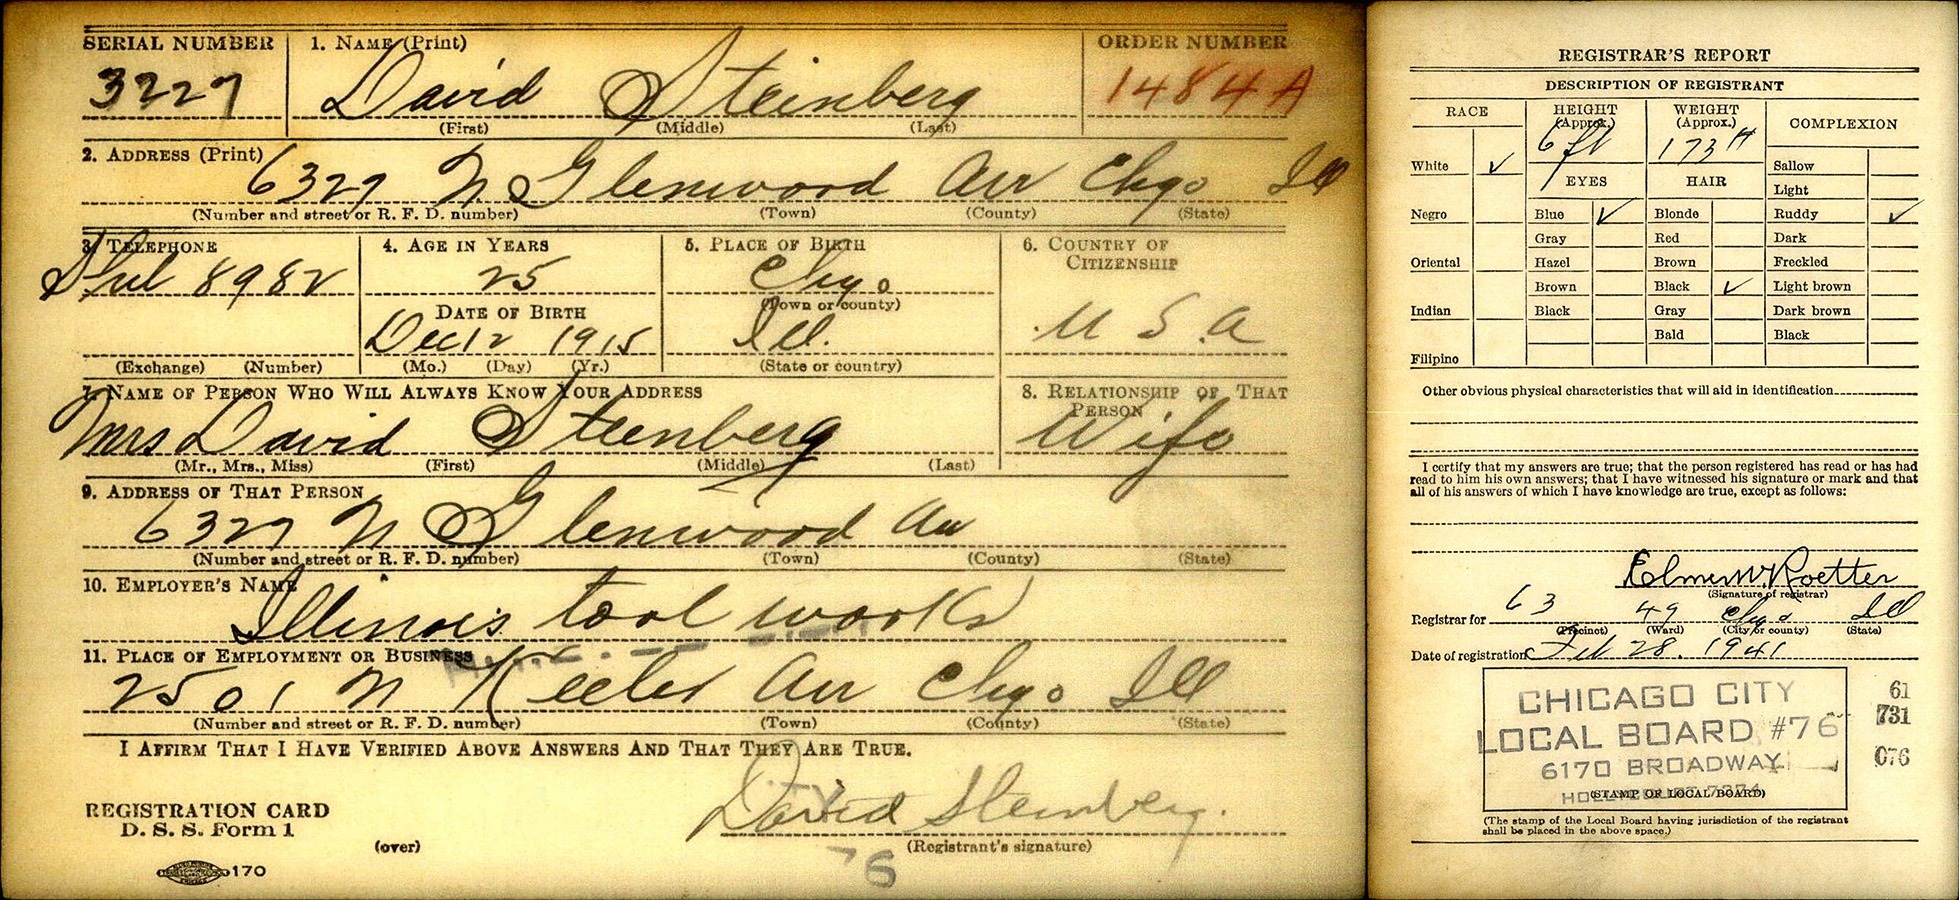 SERIAL NUMBER 1. NAME (Print) ORDER NUMBER
3227 David Steinberg 1484A
(First) (Middle) (Last)
2. ADDRESS (Print)
6327 N Glenwood Av Chgo Ill
(Number and street or R. F. D. number) (Town) (County) (State)
3. TELEPHONE 4. AGE IN YEARS 5. PLACE OF BIRTH 6. COUNTRY OF
CITIZENSHIP
8982 25 Chgo
DATE OF BIRTH (Town or county)
Dec 12 1915 Ill. U S. A
(Exchange) (Number) (Mo.) (Day) (Yr.) (State or country)
7. NAME OF PERSON WHO WILL ALWAYS KNOW YOUR ADDRESS 8. RELATIONSHIP OF THAT
PERSON
Mrs David Steinberg Wife
(Mr., Mrs., Miss) (First) (Middle) (Last)
9. ADDRESS OF THAT PERSON
6327 N Glenwood Av
(Number and street or R. F. D. number) (Town) (County) (State)
10. EMPLOYER'S NAME
Illinois tool works
11. PLACE OF EMPLOYMENT OR BUSINESS
2501 N Keeler Av Chgo Ill
(Number and street or R. F. D. number) (Town) (County) (State)
I AFFIRM THAT I HAVE VERIFIED ABOVE ANSWERS AND THAT THEY ARE TRUE.
David Steinberg.
REGISTRATION CARD
D. S. S. Form 1
(over) (Registrant's signature)
170 76
REGISTRAR'S REPORT
DESCRIPTION OF REGISTRANT
RACE HEIGHT (Approx.) WEIGHT (Approx.) COMPLEXION
6 ft 173 #
White ✓ Sallow
EYES HAIR Light
Negro Blue ✓ Blonde Ruddy ✓
Gray Red Dark
Oriental Hazel Brown Freckled
Brown Black ✓ Light brown
Indian Black Gray Dark brown
Bald Black
Filipino
Other obvious physical characteristics that will aid in identification
I certify that my answers are true; that the person registered has read or has had
read to him his own answers; that I have witnessed his signature or mark and that
all of his answers of which I have knowledge are true, except as follows:
Elmer W. Roetter
(Signature of registrar)
Registrar for 63 49 Chgo Ill
(Precinct) (Ward) (City or county) (State)
Date of registration Feb 28. 1941
CHICAGO CITY 61
LOCAL BOARD #76 731
6170 BROADWAY 076
(STAMP OF LOCAL BOARD)
(The stamp of the Local Board having jurisdiction of the registrant
shall be placed in the above space.)